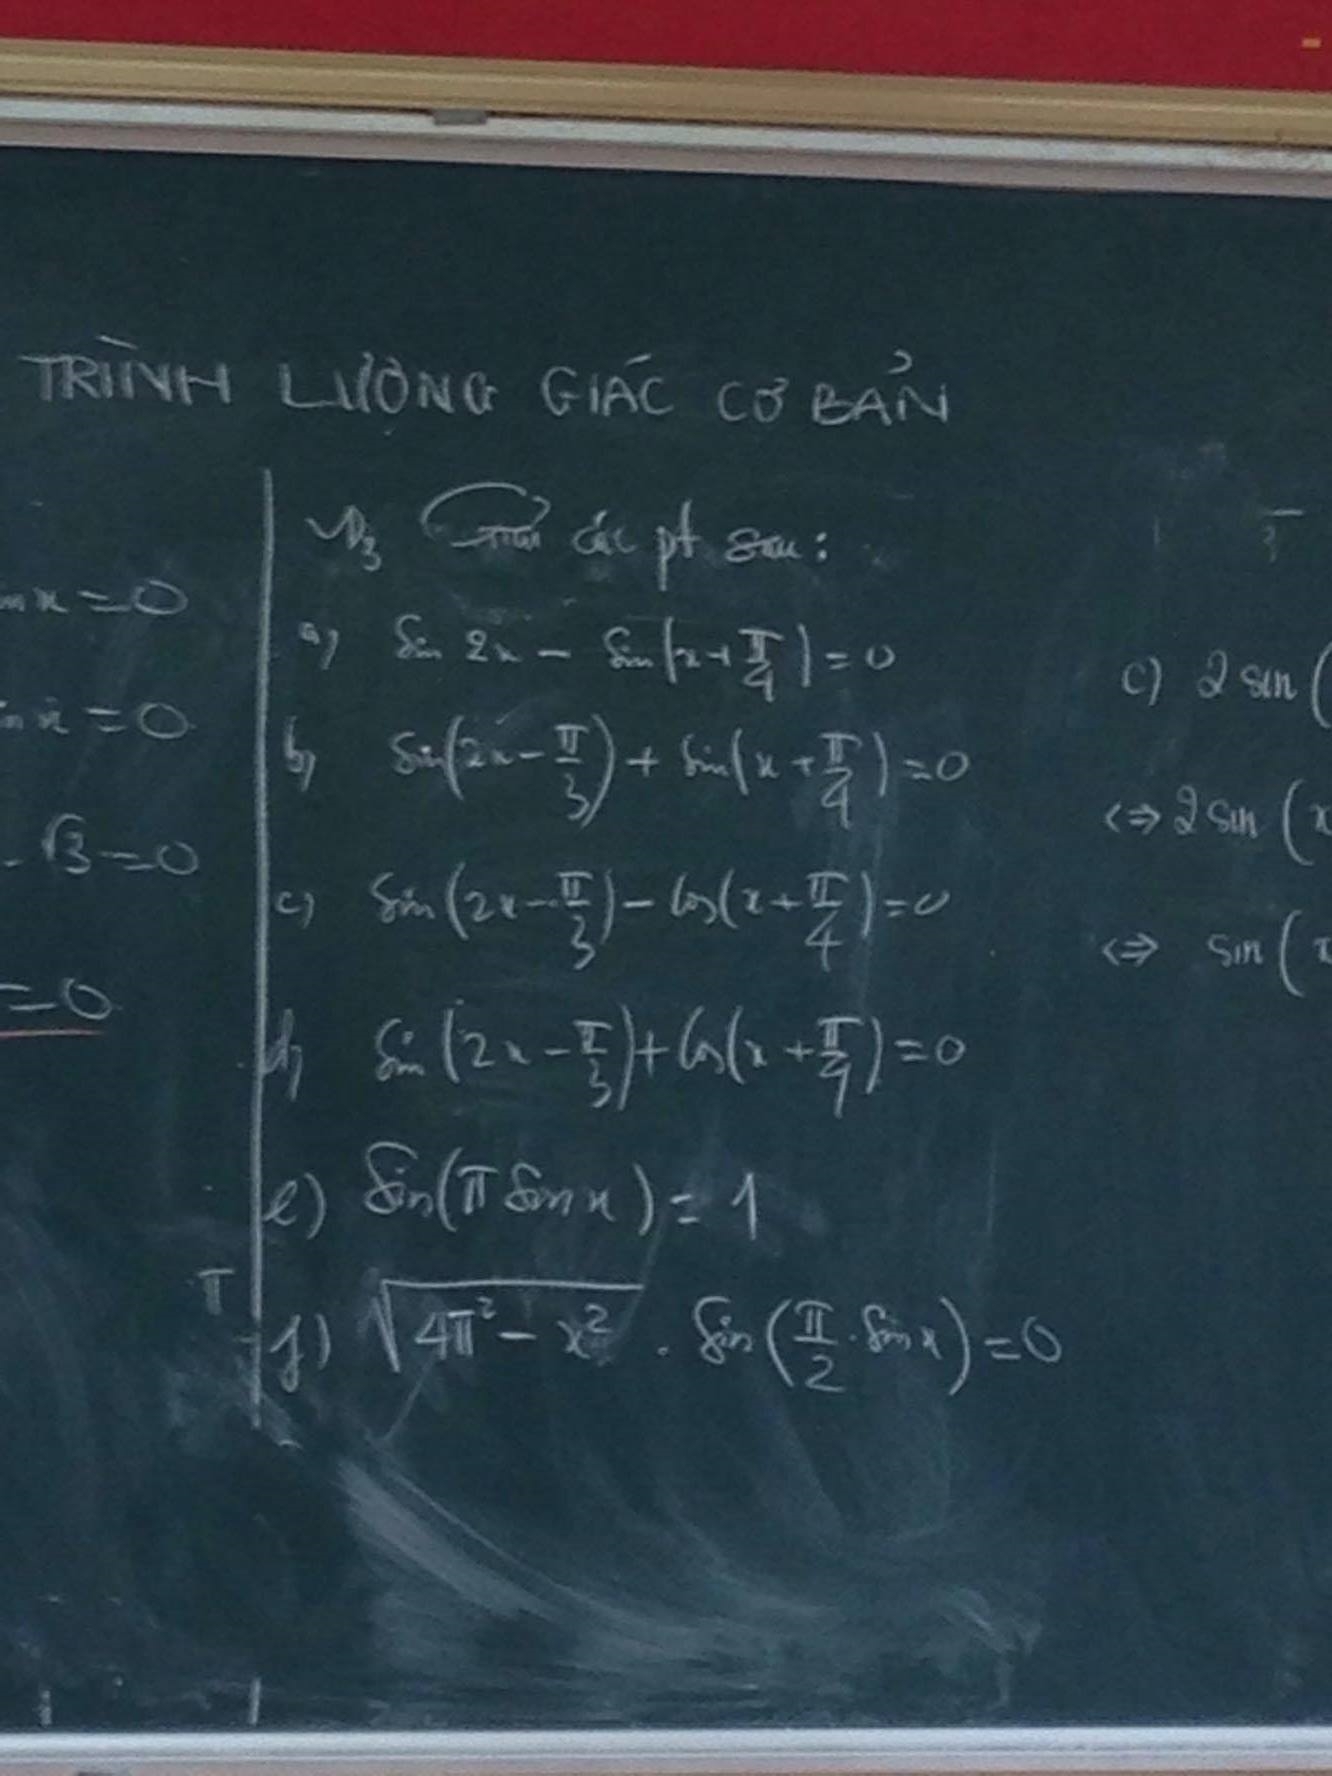 TRÌNH LƯỢNG GIÁC CƠ BẢN
sin x = 0
sin x = 0
- √3 = 0
= 0
VD3 Giải các pt sau:
a) Sin 2x - Sin(x + π/4) = 0
b) Sin(2x - π/3) + Sin(x + π/4) = 0
c) Sin(2x - π/3) - Cos(x + π/4) = 0
d) Sin(2x - π/3) + Cos(x + π/4) = 0
e) Sin(π Sin x) = 1
π
f) √(4π² - x²) . Sin(π/2 . Sin x) = 0
c) 2 sin (
⇔ 2 sin (x
⇔ sin (x